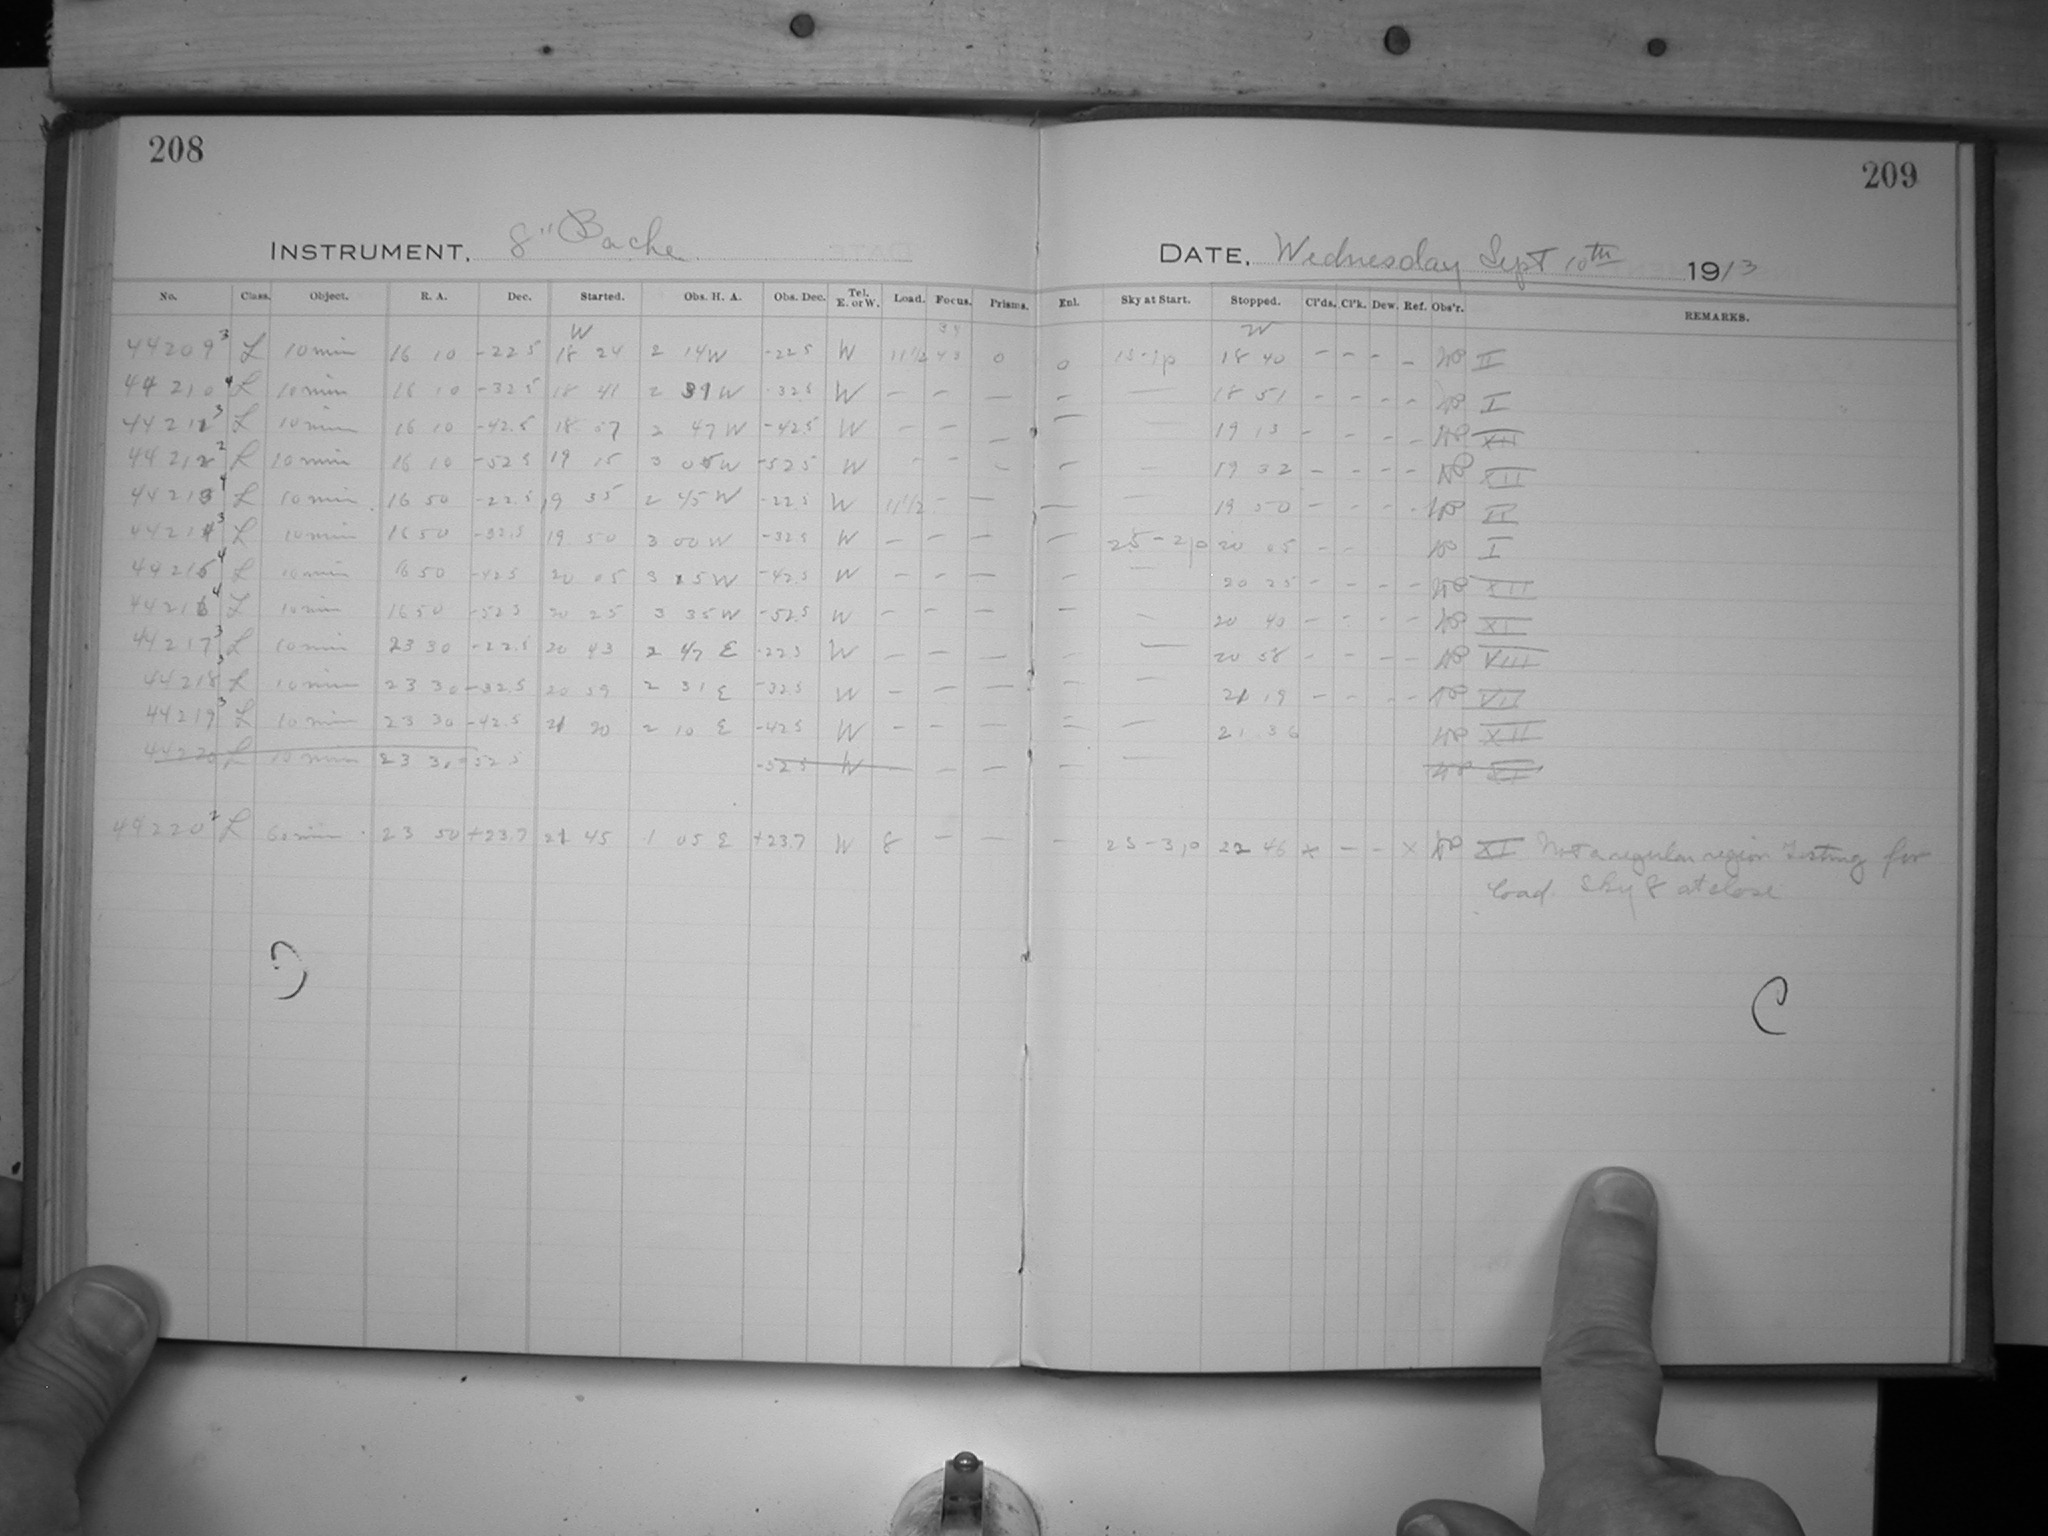 208
209
INSTRUMENT. 8" Bache
DATE. Wednesday Sept 10th 1913
No. Class. Object. R. A. Dec. Started. Obs. H. A. Obs. Dec. Tel. E. or W. Load. Focus. Prisms. Enl. Sky at Start. Stopped. Cl'ds. Cl'k. Dew. Ref. Obs'r. REMARKS.
W W
44209 3 L 10 min 16 10 -22.5 18 24 2 14 W -22.5 W 11 1/2 43 0 0 18 40 - - - - II
44210 4 L 10 min 16 10 -32.5 18 41 2 31 W -32.5 W - - - - - 18 51 - - - - I
44211 3 L 10 min 16 10 -42.5 18 57 2 47 W -42.5 W - - - - - 19 13 - - - - XII
44212 2 L 10 min 16 10 -52.5 19 15 3 05 W -52.5 W - - - - - 19 32 - - - - XII
44213 4 L 10 min 16 50 -22.5 19 35 2 45 W -22.5 W 11 1/2 - - - - 19 50 - - - - II
44214 3 L 10 min 16 50 -32.5 19 50 3 00 W -32.5 W - - - - 20 05 - - I
44215 4 L 10 min 16 50 -42.5 20 05 3 15 W -42.5 W - - - - - 20 25 - - - - XII
44216 4 L 10 min 16 50 -52.5 20 25 3 35 W -52.5 W - - - - - 20 40 - - - - XI
44217 3 L 10 min 23 30 -22.5 20 43 2 47 E -22.5 W - - - - - 20 58 - - - - VIII
44218 3 L 10 min 23 30 -32.5 20 59 2 31 E -32.5 W - - - - - 21 19 - - - - VII
44219 3 L 10 min 23 30 -42.5 21 20 2 10 E -42.5 W - - - - - 21 36 XII
44220 L 10 min 23 30 -52.5 -52.5 W - - - - XI
44220 2 L 60 min 23 50 +23.7 21 45 1 05 E +23.7 W 8 - - - 22 46 x - - x XI Not a regular region Testing for
load. Sky 8 at close